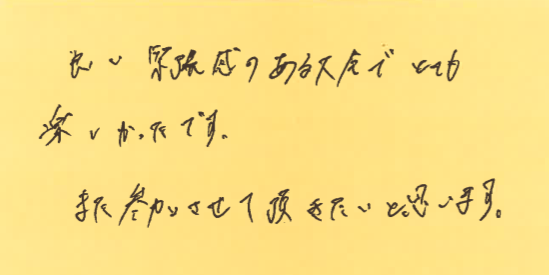 良い緊張感のある大会でとても
楽しかったです。
また参加させて頂きたいと思います。